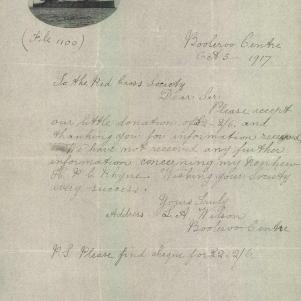 (File 1100)
Booleroo Centre
Oct 5 - 1917
To the Red Cross Society
Dear Sir
Please accept
our little donation of £2-2/6, and
thanking you for information received
We have not received any further
information concerning my Nephew
H. P. C. Rhyne. Wishing your Society
every success.
Yours Truly
Address L. A. Wilson
Booleroo Centre
P.S. Please find cheque for £2-2/6